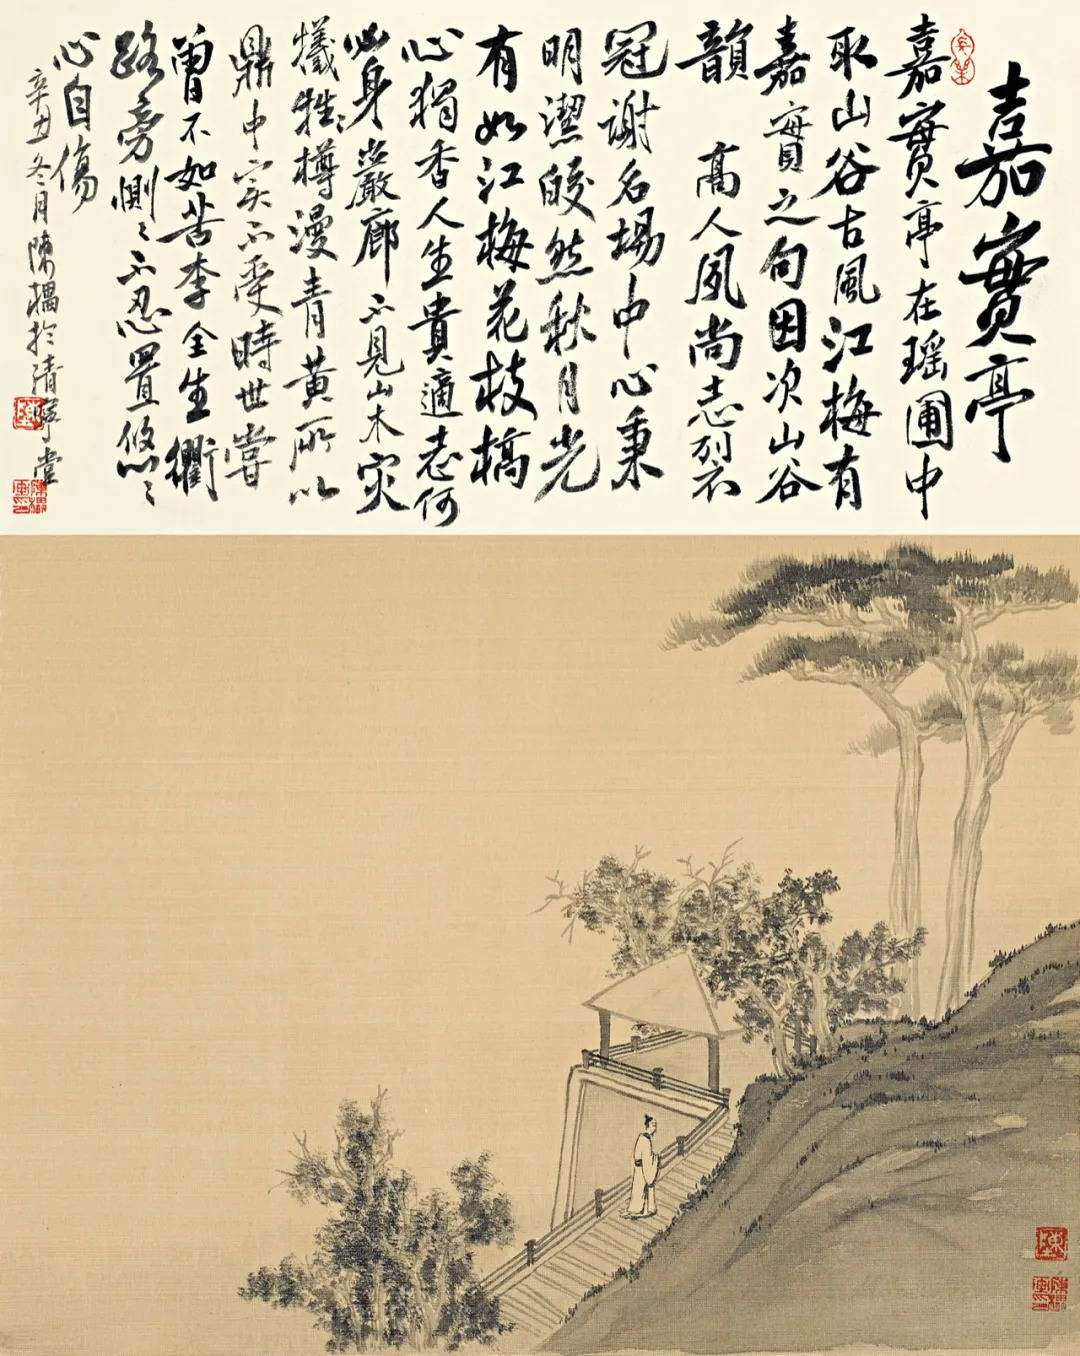 嘉實亭
嘉實亭在瑶圃中
取山谷古風江梅有
嘉實之句因次山谷
韻 高人夙尚志裂
冠謝名場中心秉
明潔皎然秋月光
有如江梅花枝槁
心獨香人生貴適志何
必身巖廊不見山木灾
犧牲樽漫青黄所以
鼎中实不受時世嘗
曾不如苦李全生衢
路旁惻惻不忍置悠悠
心自傷
辛丑冬月陳於清堂